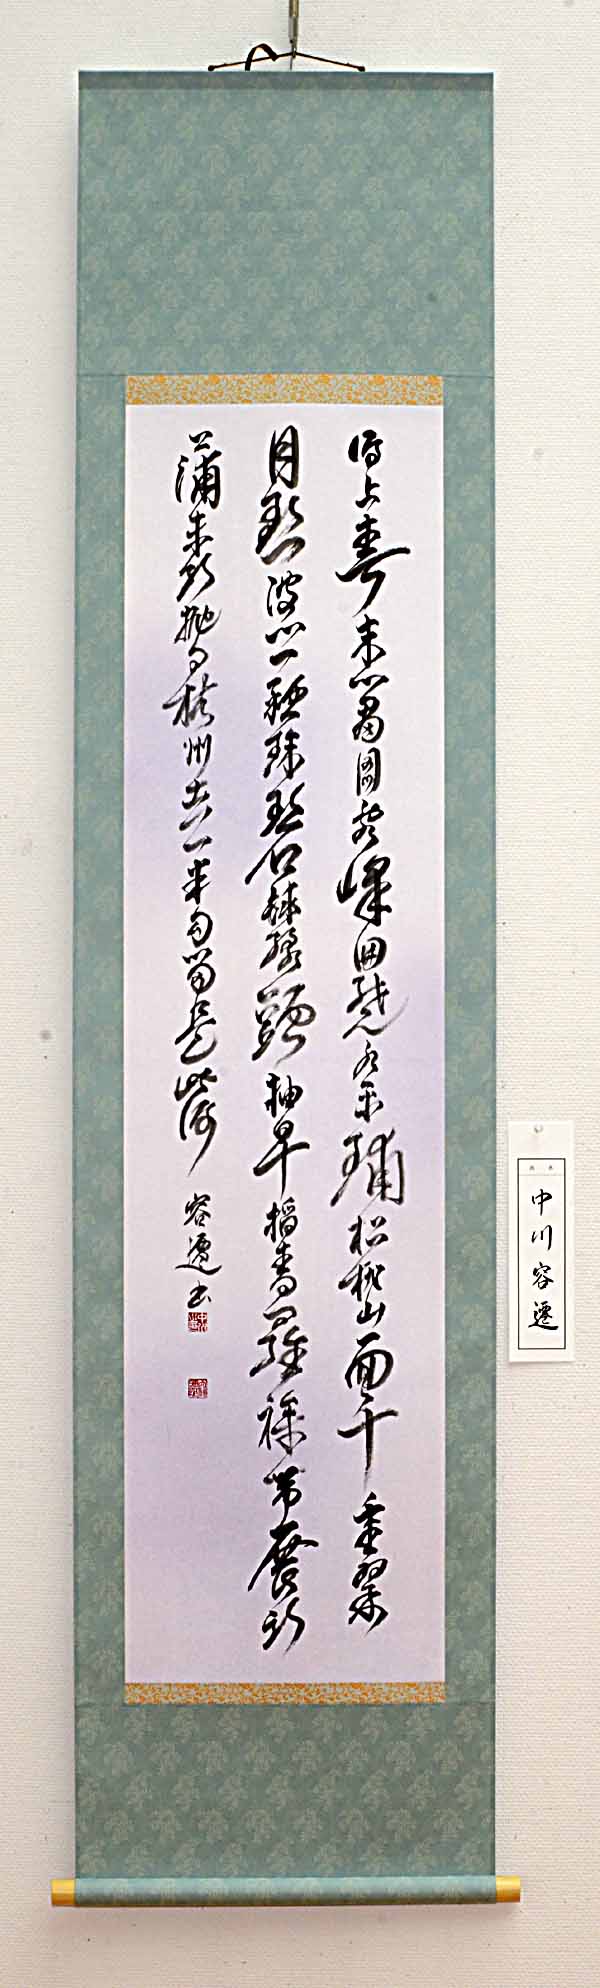 湖上春来似畫圖亂峰囲繞水平鋪松排山面千重翠
月點波心一顆珠碧毯線頭抽早稻青羅裙帶展新
蒲未能抛得杭州去一半勾留是此湖 容遷書
中川容遷